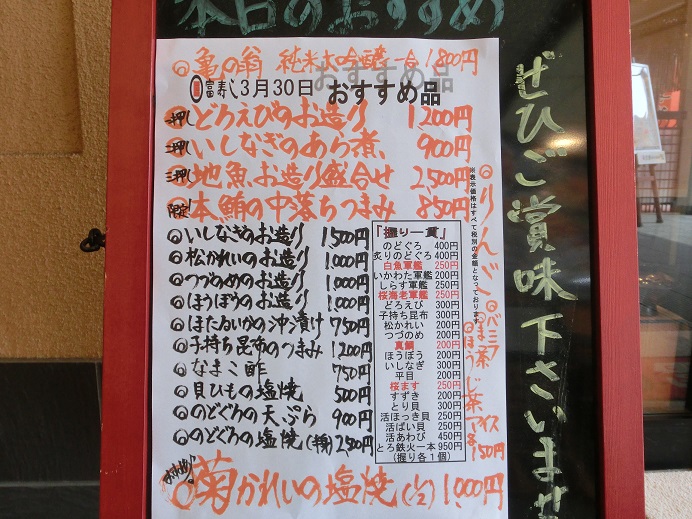 本日のおすすめ
◎亀の翁 純米大吟醸 一合 1,800円
富寿し 3月30日 おすすめ品
一押し どろえびのお造り 1,200円
二押し いしなぎのあら煮 900円
三押し 地魚お造り盛合せ 2,500円
限定! 本鮪の中落ちつまみ 850円
◎いしなぎのお造り 1,500円
◎松かれいのお造り 1,000円
◎つづのめのお造り 1,000円
◎ほうぼうのお造り 1,000円
◎ほたるいかの沖漬け 750円
◎子持ち昆布のつまみ 1,200円
◎なまこ酢 750円
◎貝ひもの塩焼 500円
◎のどぐろの天ぷら 900円
◎のどぐろの塩焼(半身) 2,500円
おすすめ! 菊かれいの塩焼(小) 1,000円
『握り一貫』
のどぐろ 400円
炙りのどぐろ 400円
白魚軍艦 250円
いかわた軍艦 200円
しらす軍艦 250円
桜海老軍艦 250円
どろえび 300円
子持ち昆布 300円
松かれい 200円
つづのめ 200円
真鯛 200円
ほうぼう 200円
いしなぎ 300円
平目 200円
桜ます 250円
すずき 200円
とり貝 300円
活ほっき貝 250円
活ばい貝 250円
活あわび 450円
とろ鉄火一本 950円
(握り各1個)
※表示価格はすべて税別の金額となっております
◎りんご
◎バニラ
◎ま茶
◎ほうじ茶
アイス
各150円
ぜひご賞味下さいませ